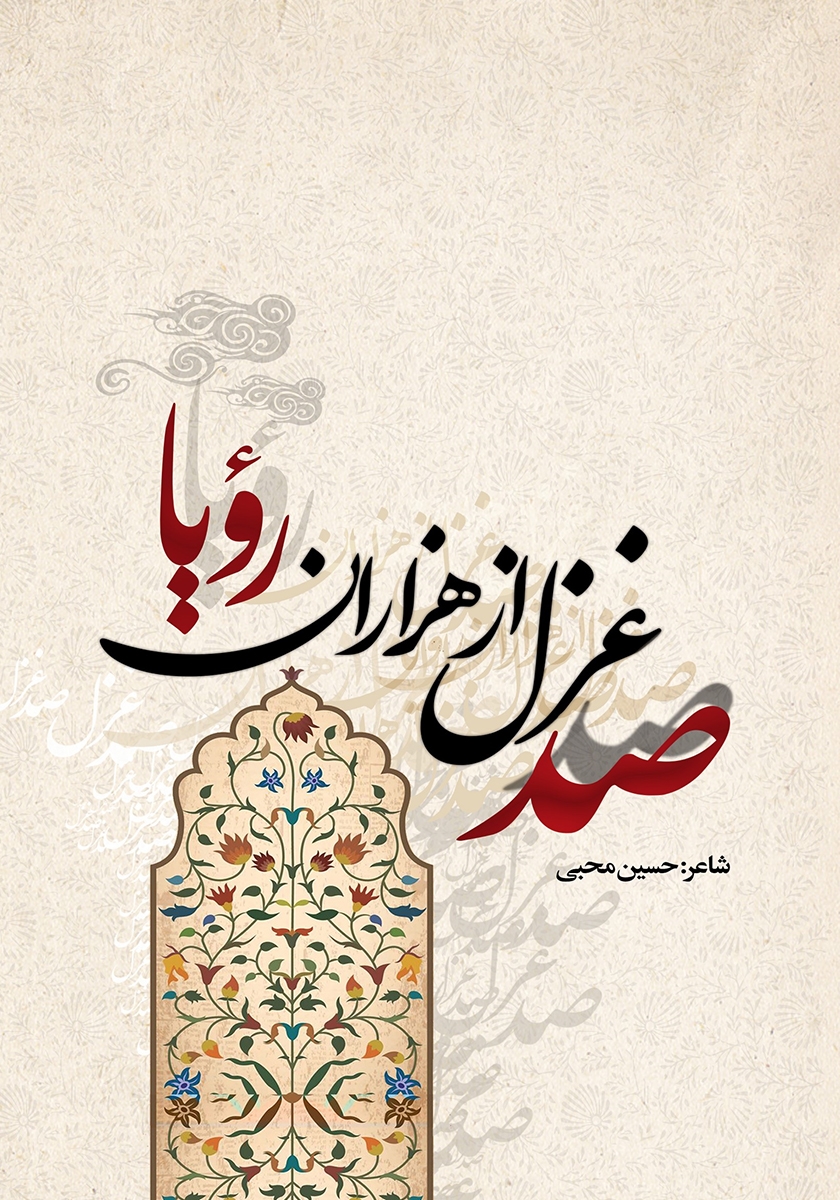 صد غزل از هزاران رؤیا
شاعر: حسین محبی